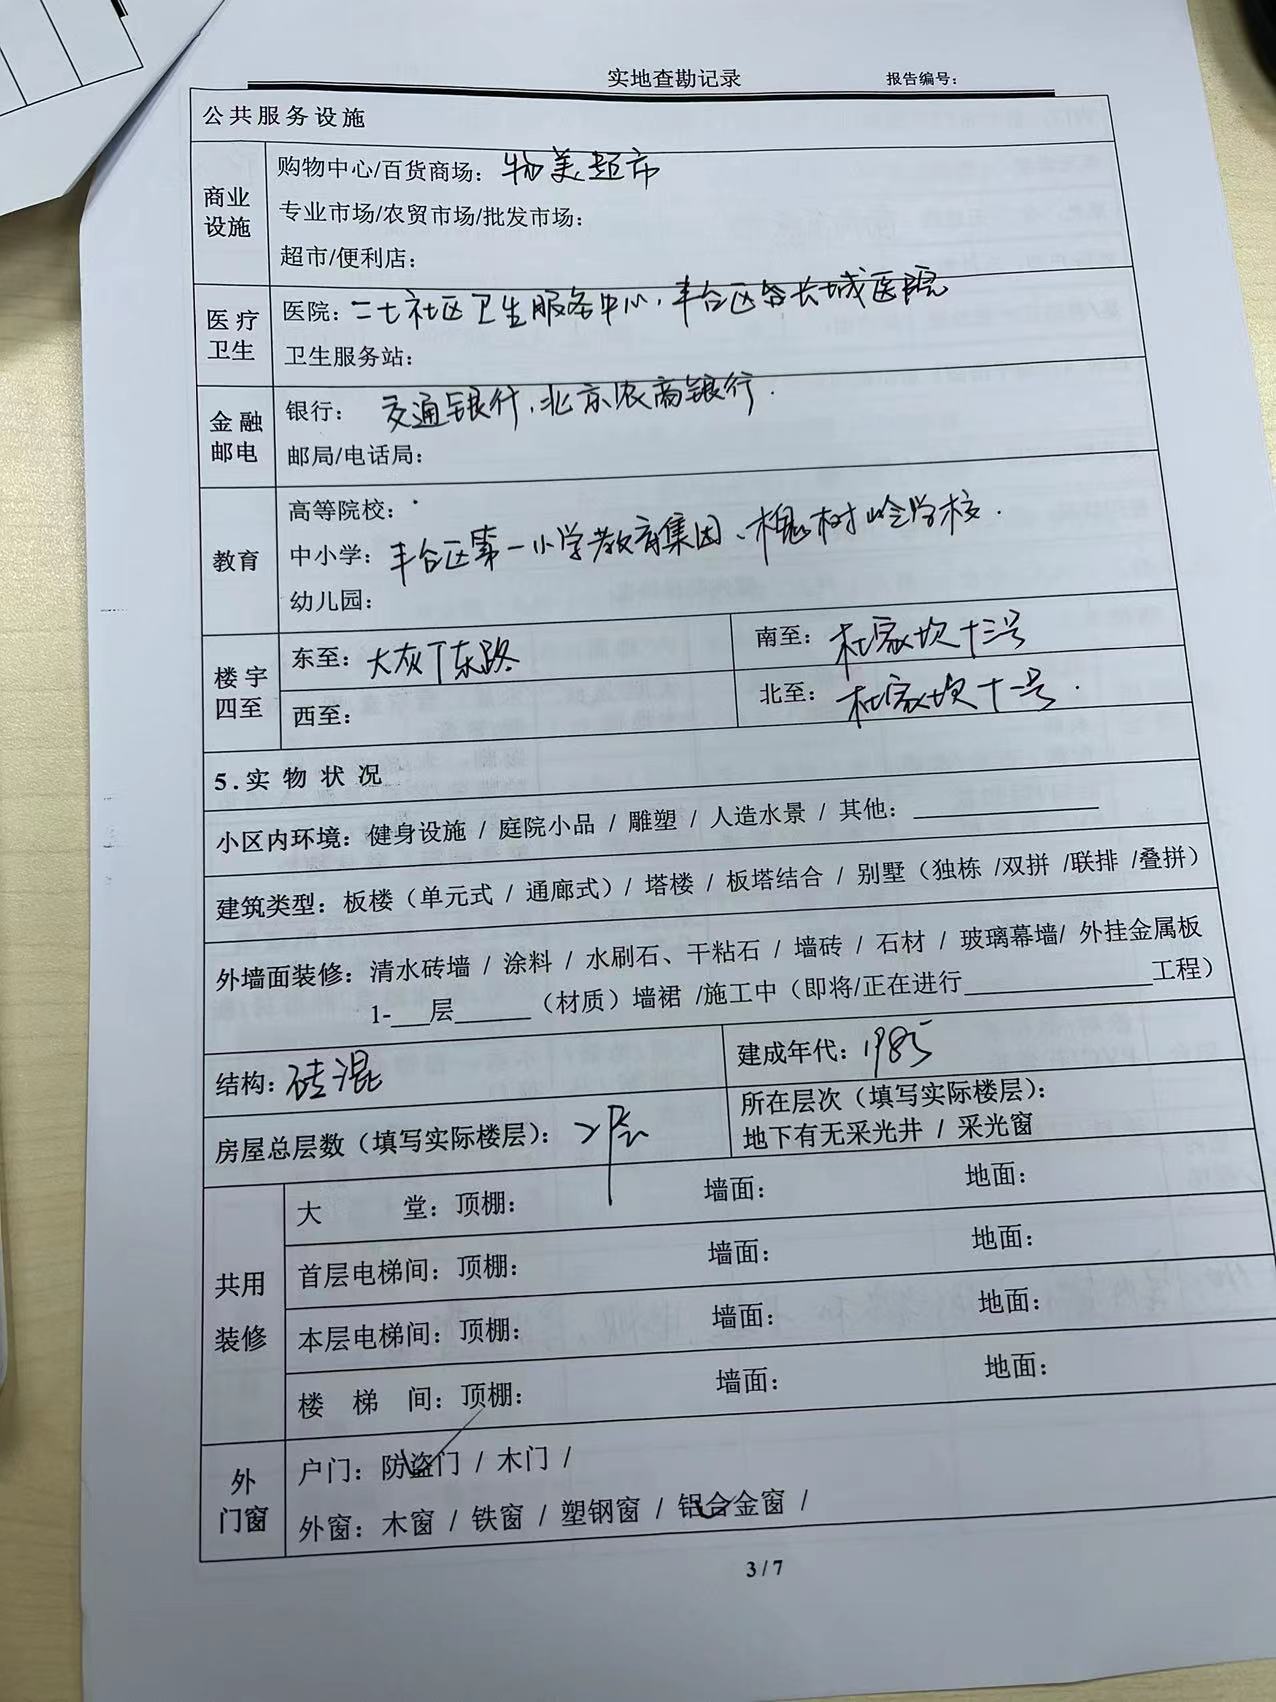 实地查勘记录 报告编号：
公共服务设施
商业设施
购物中心/百货商场：物美超市
专业市场/农贸市场/批发市场：
超市/便利店：
医疗卫生
医院：二七社区卫生服务中心，丰台区长城医院
卫生服务站：
金融邮电
银行：交通银行、北京农商银行．
邮局/电话局：
教育
高等院校：
中小学：丰台区第一小学教育集团、槐树岭学校．
幼儿园：
楼宇四至
东至：大灰厂东路 南至：杜家坎十三号
西至： 北至：杜家坎十一号．
5.实物状况
小区内环境：健身设施 / 庭院小品 / 雕塑 / 人造水景 / 其他：____________
建筑类型：板楼（单元式 / 通廊式）/ 塔楼 / 板塔结合 / 别墅（独栋 /双拼 /联排 /叠拼）
外墙面装修：清水砖墙 / 涂料 / 水刷石、干粘石 / 墙砖 / 石材 / 玻璃幕墙/ 外挂金属板
1-___层______（材质）墙裙 /施工中（即将/正在进行______________工程）
结构：砖混 建成年代：1985
房屋总层数（填写实际楼层）： 所在层次（填写实际楼层）：
地下有无采光井 / 采光窗
共用装修
大堂：顶棚： 墙面： 地面：
首层电梯间：顶棚： 墙面： 地面：
本层电梯间：顶棚： 墙面： 地面：
楼梯间：顶棚： 墙面： 地面：
外门窗
户门：防盗门 / 木门 /
外窗：木窗 / 铁窗 / 塑钢窗 / 铝合金窗 /
3 / 7